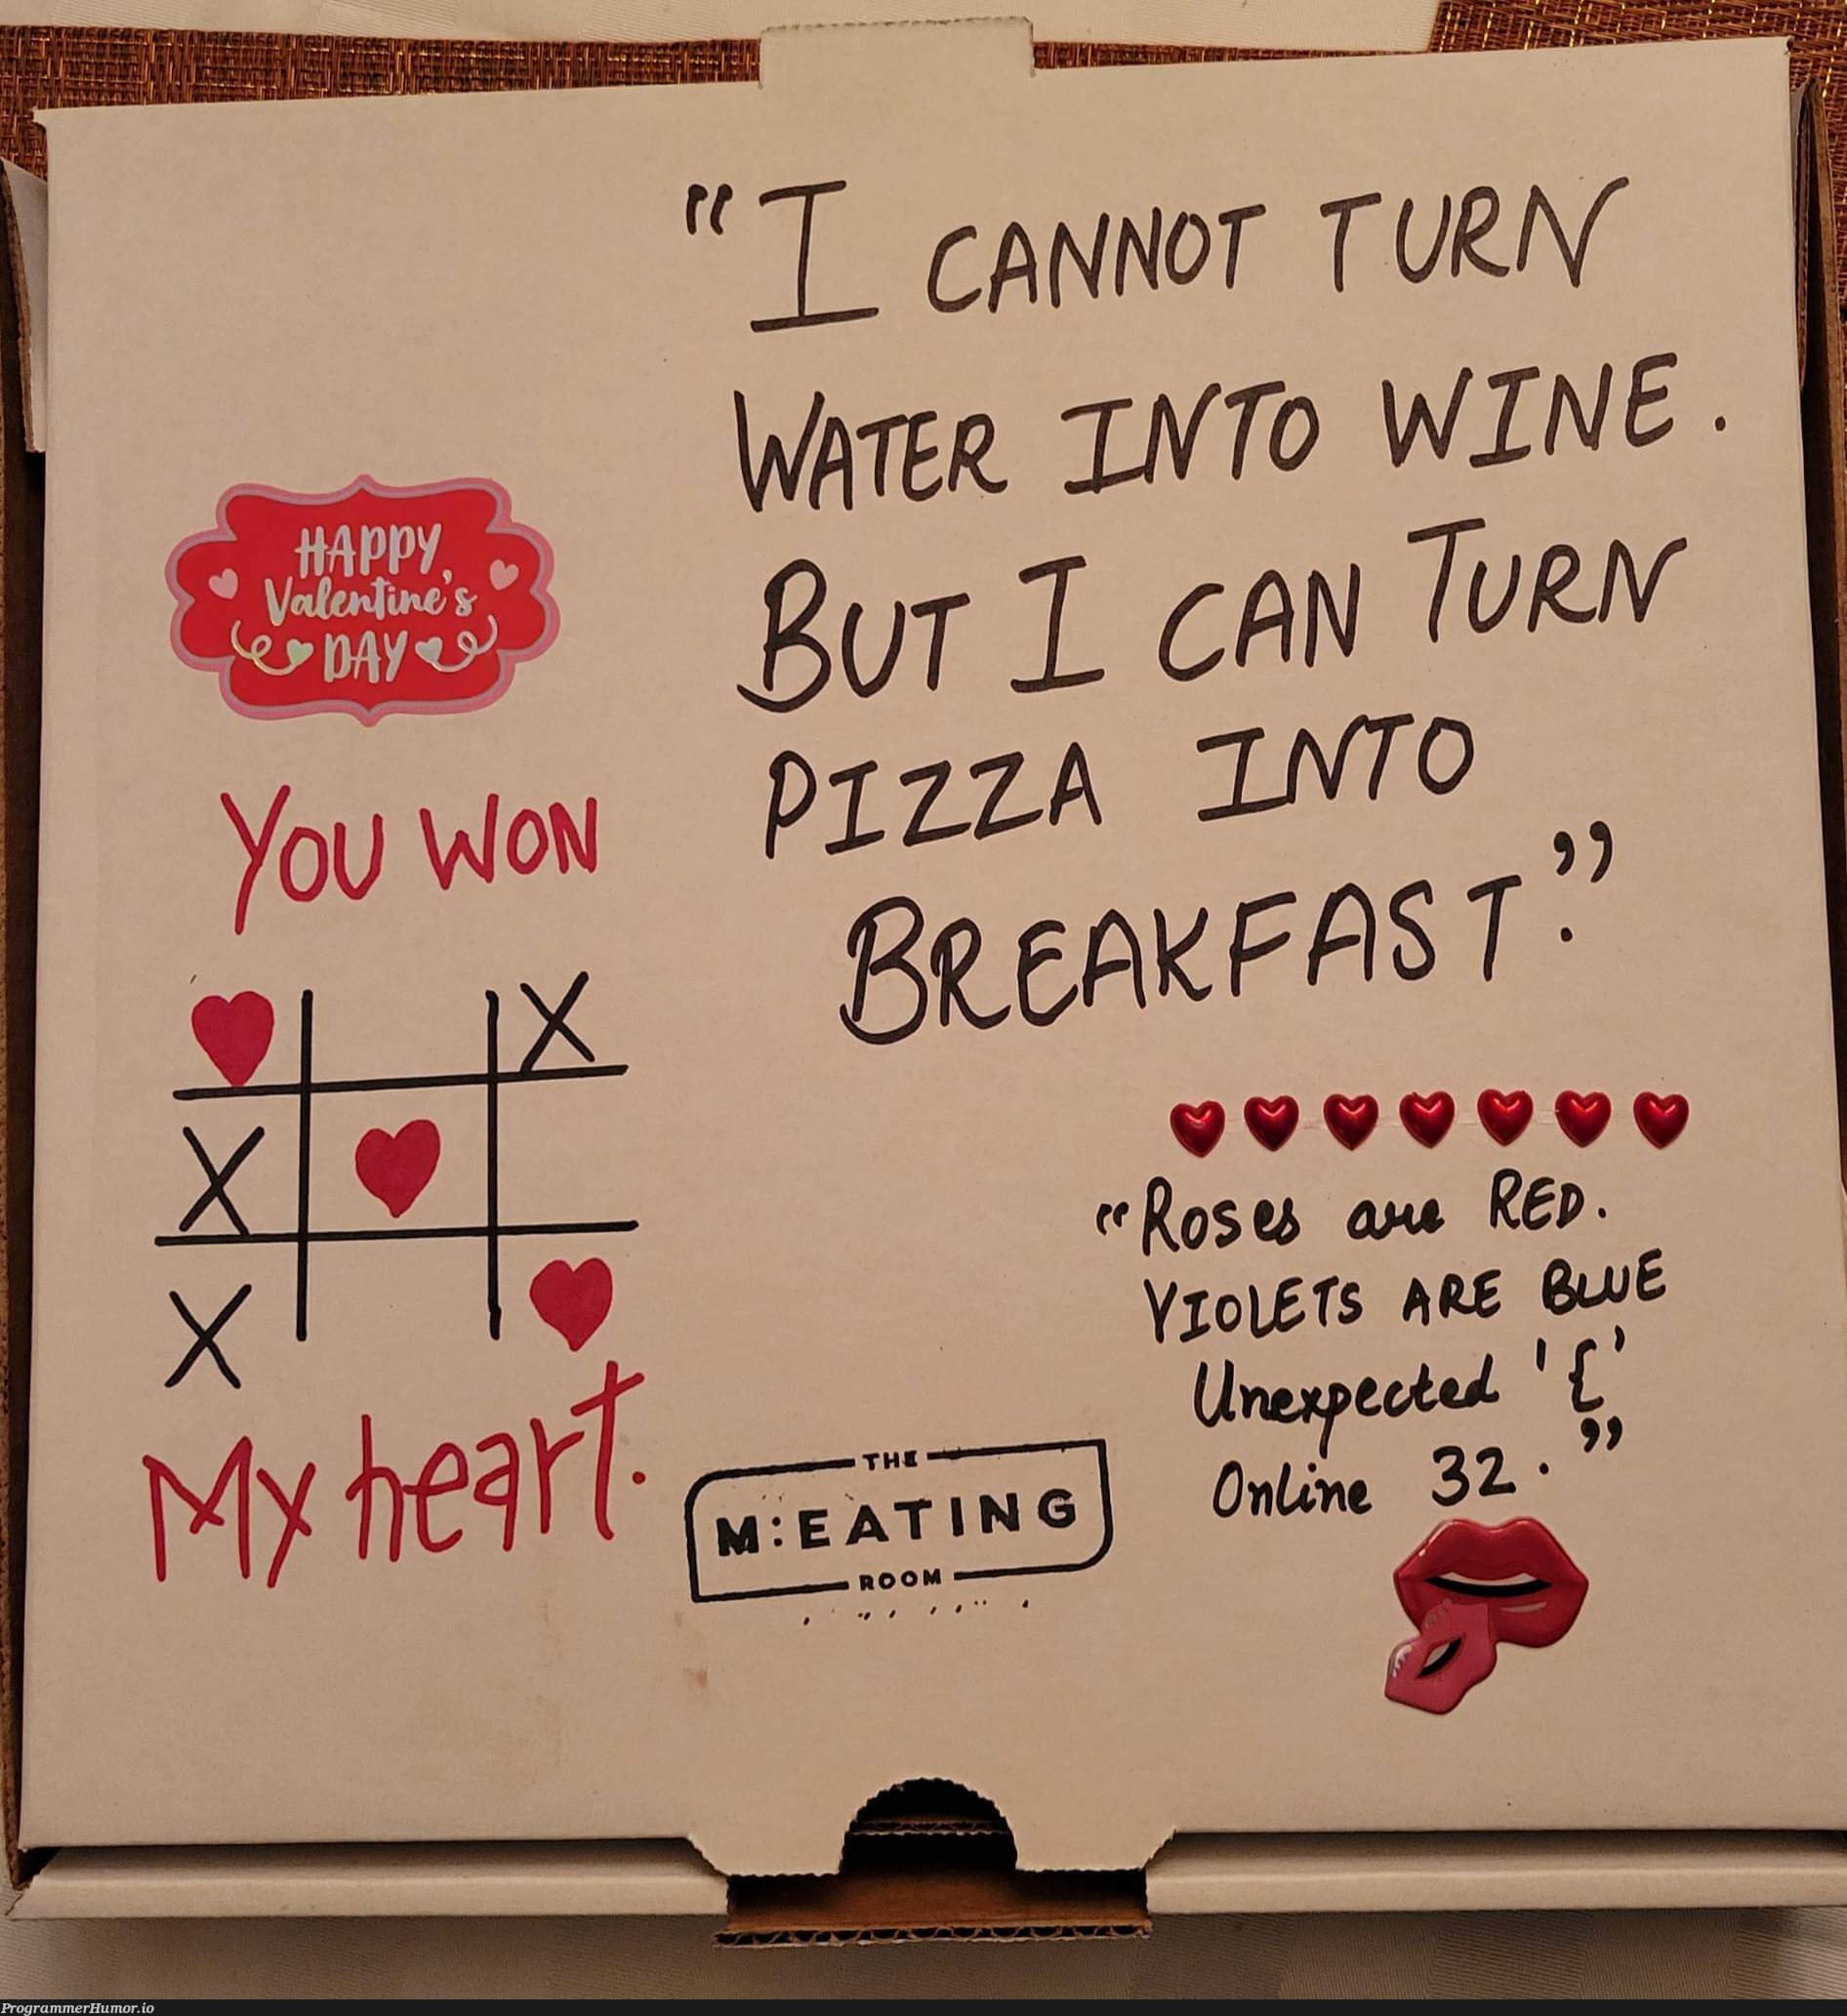 "I CANNOT TURN
WATER INTO WINE.
BUT I CAN TURN
PIZZA INTO
BREAKFAST."
HAPPY
Valentine's
DAY
YOU WON
X
X
X
My heart.
"Roses are RED.
VIOLETS ARE BLUE
Unexpected '{'
Online 32."
THE
M:EATING
ROOM
ProgrammerHumor.io